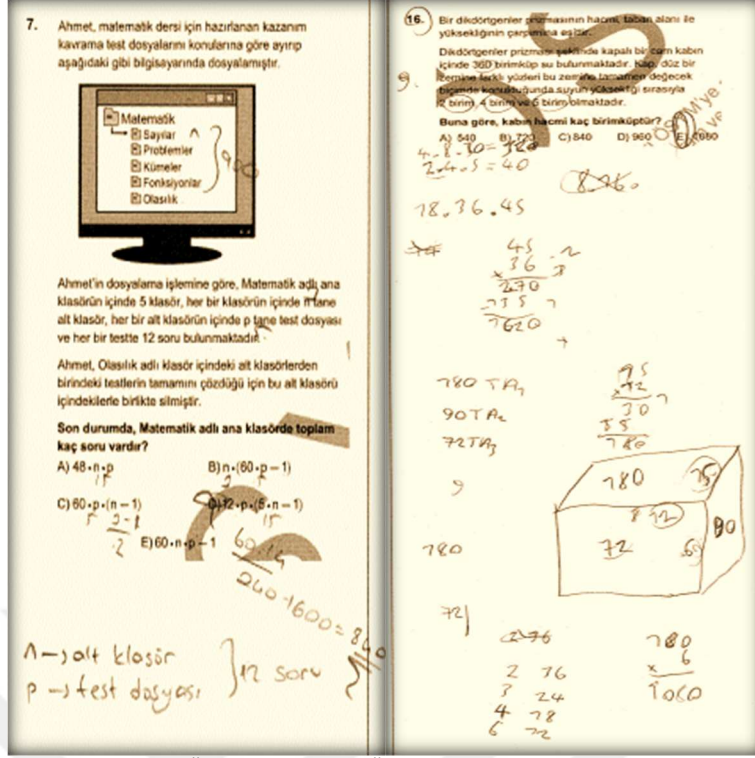 7. Ahmet, matematik dersi için hazırlanan kazanım
kavrama test dosyalarını konularına göre ayırıp
aşağıdaki gibi bilgisayarında dosyalamıştır.
Matematik
Sayılar
Problemler
Kümeler
Fonksiyonlar
Olasılık
900
Ahmet'in dosyalama işlemine göre, Matematik adlı ana
klasörün içinde 5 klasör, her bir klasörün içinde n tane
alt klasör, her bir alt klasörün içinde p tane test dosyası
ve her bir testte 12 soru bulunmaktadır.
Ahmet, Olasılık adlı klasör içindeki alt klasörlerden
birindeki testlerin tamamını çözdüğü için bu alt klasörü
içindekilerle birlikte silmiştir.
Son durumda, Matematik adlı ana klasörde toplam
kaç soru vardır?
A) 48•n•p
B) n•(60•p – 1)
C) 60•p•(n – 1)
D) 12•p•(5•n – 1)
E) 60•n•p – 1
n → alt klasör
p → test dosyası
12 soru
16. Bir dikdörtgenler prizmasının hacmi, taban alanı ile
yüksekliğinin çarpımına eşittir.
Dikdörtgenler prizması şeklinde kapalı bir cam kabın
içinde 360 birimküp su bulunmaktadır. Kap, düz bir
zemine farklı yüzleri bu zemine tamamen değecek
biçimde konulduğunda suyun yüksekliği sırasıyla
2 birim, 4 birim ve 5 birim olmaktadır.
Buna göre, kabın hacmi kaç birimküptür?
A) 540 B) 720 C) 840 D) 960 E) 1080
2.4.5 = 40
18.36.45
45
36
270
135
1620
180 TA1
90 TA2
72 TA3
9
180
180
72
90
2 36
3 24
4 18
6 12
180
x 6
1060